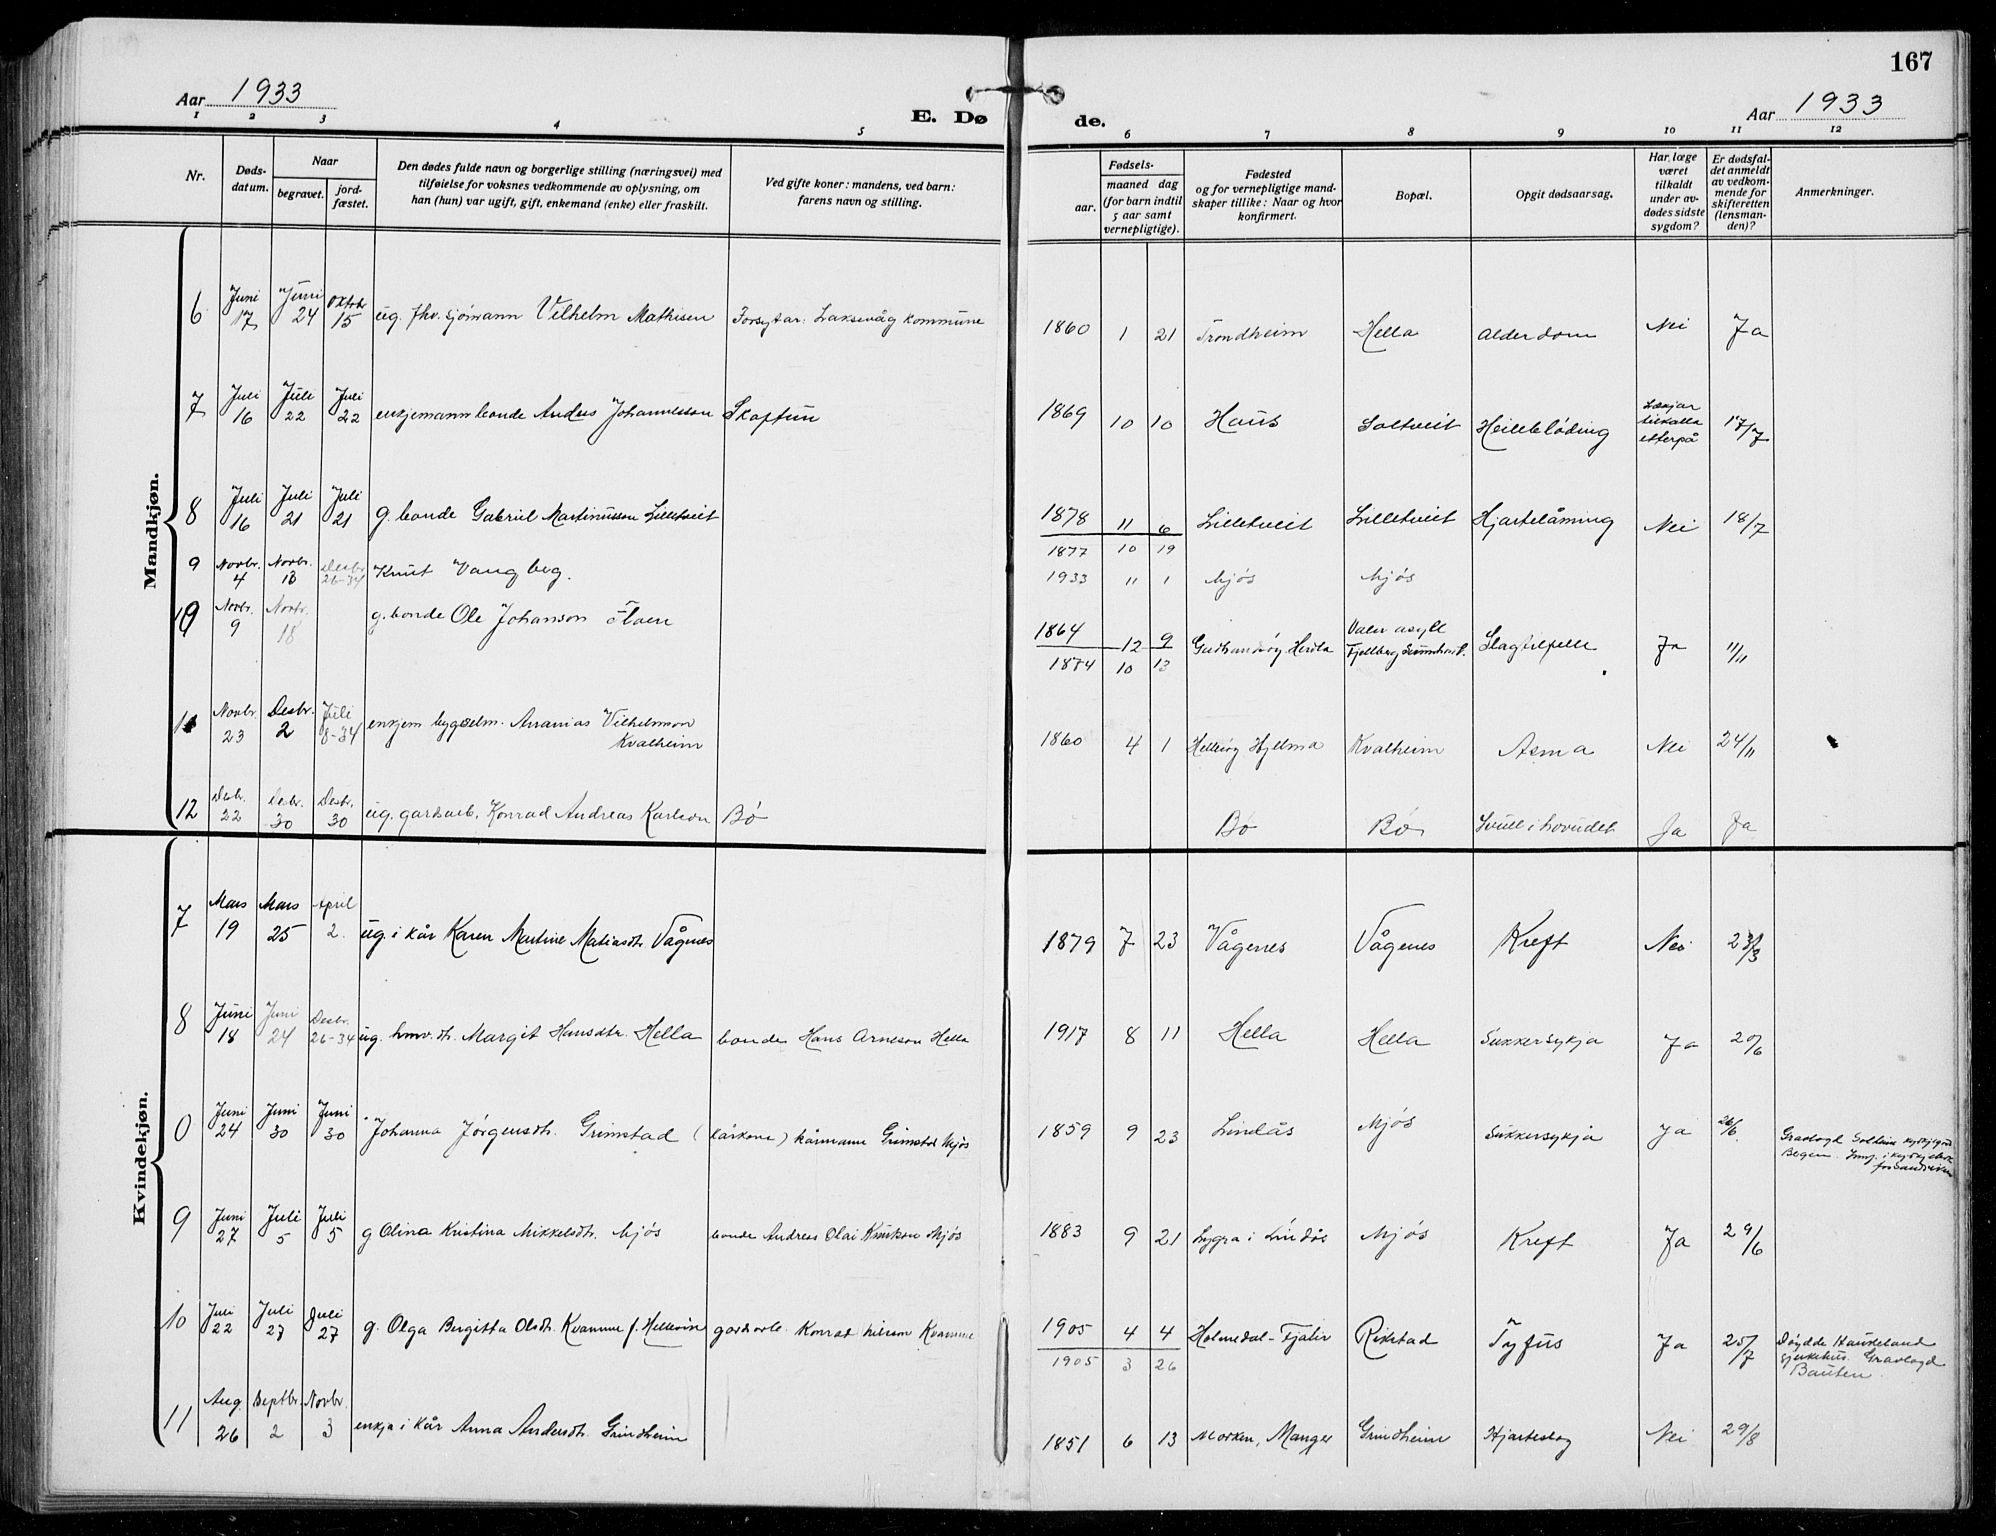 167
Aar 1933
E. Dø de.
Aar 1933
1 2 3 4 5 6 7 8 9 10 11 12
Nr.
Døds-
datum.
Naar
begravet.
jord-
fæstet.
Den dødes fulde navn og borgerlige stilling (næringsvei) med
tilføielse for voksnes vedkommende av oplysning, om
han (hun) var ugift, gift, enkemand (enke) eller fraskilt.
Ved gifte koner: mandens, ved barn:
farens navn og stilling.
Fødsels-
aar.
maaned dag
(for barn indtil
5 aar samt
vernepligtige).
Fødested
og for vernepligtige mand-
skaper tillike: Naar og hvor
konfirmert.
Bopæl.
Opgit dødsaarsag.
Har læge
været
tilkaldt
under av-
dødes sidste
sygdom?
Er dødsfal-
det anmeldt
av vedkom-
mende for
skifteretten
(lensman-
den)?
Anmerkninger.
Mandkjøn.
6 Juni 17 Juni 24 Oktobr 15 ug. fhv. sjømann Vilhelm Mathisen Forsytar: Laksevåg kommune 1860 1 21 Trondheim Hella Alderdom Nei Ja
7 Juli 16 Juli 22 Juli 22 enkjemann bonde Andres Johannesson Skaftun 1869 10 10 Haus Soltveit Heilebløding Lækjar tilkalla etterpå 17/7
8 Juli 16 Juli 21 Juli 21 g. bonde Gabriel Martinusson Lilletveit 1878 11 6 Lilletveit Lilletveit Hjartelåming Nei 18/7
1877 10 19
9 Novbr. 4 Novbr. 18 Desbr 26-34 Knut Vangberg. 1933 11 1 Mjøs Mjøs
10 Novbr. 9 Novbr. 18 g. bonde Ole Johanson Floen 1864 12 9 Herdla Valen asyll Fjellberg Slagtilfelle Ja 11/11
1874 10 13
11 Novbr. 23 Desbr. 2 Juli 8-34 enkjem bygselm. Ananias Vilhelmson
Kvalheim 1860 4 1 Hellesøy Hjelma Kvalheim Asma Nei 24/11
12 Desbr. 22 Desbr. 30 Desbr. 30 ug. gardsarb. Konrad Andreas Karlson Bø Bø Bø Svull i hovudet Ja Ja
Kvindekjøn.
7 Mars 19 Mars 25 April 2. ug. i kår Karen Martine Matiasdtr. Vågenes 1879 7 23 Vågenes Vågenes Kreft Nei 23/3
8 Juni 18 Juni 24 Desbr. 26-34 ug. hmv. dtr. Margit Hansdtr. Hella bonde Hans Arneson Hella 1917 8 11 Hella Hella Sukkersykja Ja 20/6
0 Juni 24 Juni 30 Juni 30 Johanna Jørgensdtr. Grimstad (kårkone) kårmann Grimstad Mjøs 1859 9 23 Lindås Mjøs Sukkersykja Ja 26/6. Gravlagd Solheim
Bergen.
9 Juni 27 Juli 5 Juli 5 g Olina Kristina Mikkelsdtr. Mjøs bonde Andreas Olai Knutson Mjøs 1883 9 21 Lygra i Lindås Mjøs Kreft Ja 29/6
10 Juli 22 Juli 27 Juli 27 g. Olga Bergitta Olsdtr. Kvamme f. Hellevin gardarb. Konrad Nilson Kvamme 1905 4 4 Holmedal-Fjaler Rikstad Tyfus Ja 25/7 Døydde Haukeland
sjukehus. Gravlagd
1905 3 26
11 Aug. 26 Septbr. 2 Novbr. 3 enkja i kår Anna Andersdtr. Grindheim 1851 6 13 Morken, Manger Grindheim Hjarteslag Nei 29/8